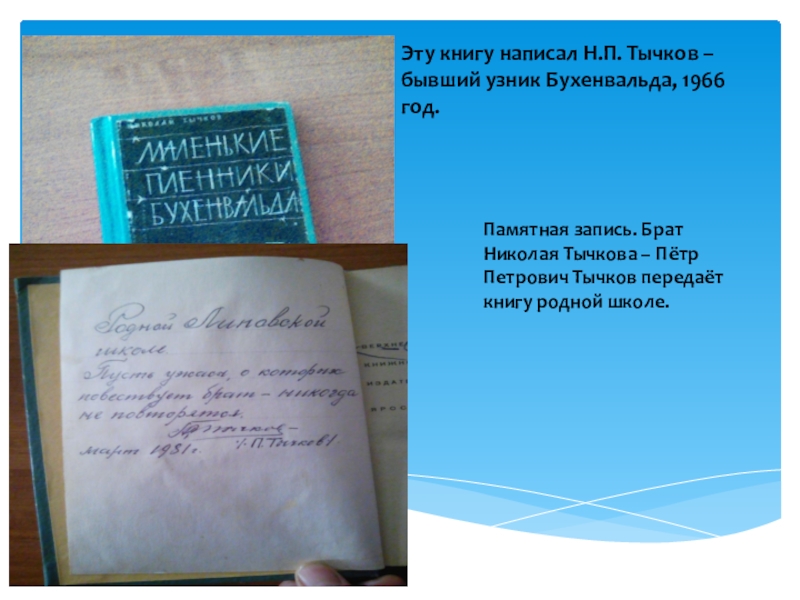 Эту книгу написал Н.П. Тычков –
бывший узник Бухенвальда, 1966
год.
МАЛЕНЬКИЕ
ПЛЕННИКИ
БУХЕНВАЛЬДА
Памятная запись. Брат
Николая Тычкова – Пётр
Петрович Тычков передаёт
книгу родной школе.
Родной Липовской
школе.
Пусть ужасы, о которых
повествует брат – никогда
не повторятся.
П. Тычков
март 1981 г.
КНИЖН
ИЗДАТ
ЯРОС